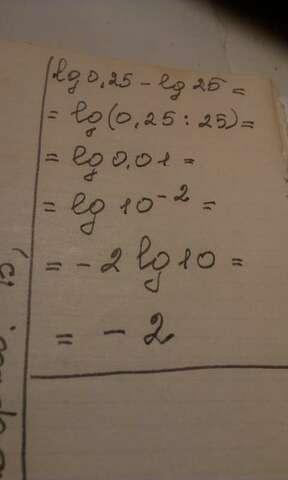 lg 0,25 - lg 25 =
= lg(0,25 : 25) =
= lg 0,01 =
= lg 10⁻² =
= - 2 lg 10 =
= - 2